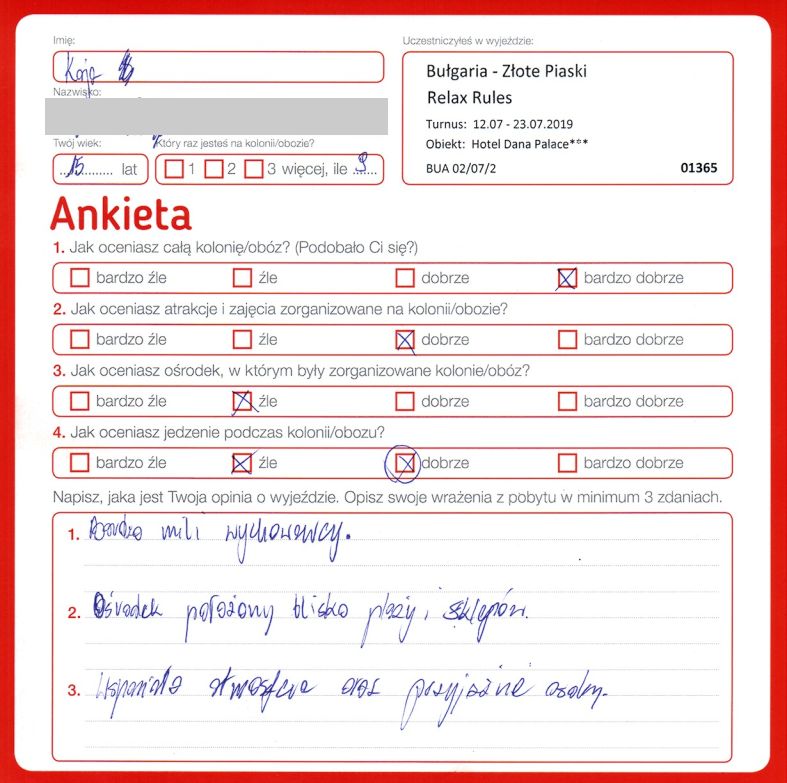 Imię:
Kaja
Nazwisko:
Twój wiek:
15 lat
Który raz jesteś na kolonii/obozie?
1 2 3 więcej, ile 9
Uczestniczyłeś w wyjeździe:
Bułgaria - Złote Piaski
Relax Rules
Turnus: 12.07 - 23.07.2019
Obiekt: Hotel Dana Palace***
BUA 02/07/2 01365
Ankieta
1. Jak oceniasz całą kolonię/obóz? (Podobało Ci się?)
bardzo źle źle dobrze bardzo dobrze
2. Jak oceniasz atrakcje i zajęcia zorganizowane na kolonii/obozie?
bardzo źle źle dobrze bardzo dobrze
3. Jak oceniasz ośrodek, w którym były zorganizowane kolonie/obóz?
bardzo źle źle dobrze bardzo dobrze
4. Jak oceniasz jedzenie podczas kolonii/obozu?
bardzo źle źle dobrze bardzo dobrze
Napisz, jaka jest Twoja opinia o wyjeździe. Opisz swoje wrażenia z pobytu w minimum 3 zdaniach.
1. Bardzo mili wychowawcy.
2. Ośrodek położony blisko plaży i sklepów.
3. Wspaniała atmosfera oraz przyjaźne osoby.